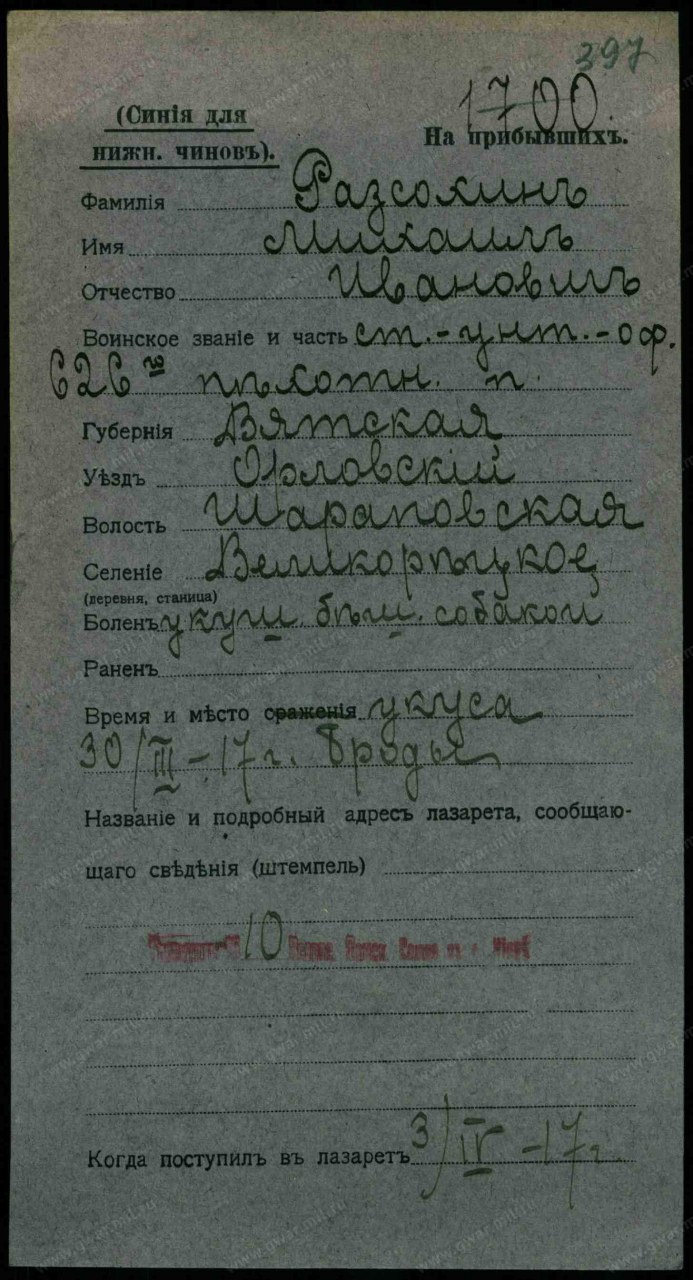 397
1700.
(Синія для
нижн. чиновъ).
На прибывшихъ.
Фамилія Разсохинъ
Имя Михаилъ
Отчество Ивановичъ
Воинское званіе и часть ст.-унт.-оф.
626го пѣхотн. п.
Губернія Вятская
Уѣздъ Орловскій
Волость Шараповская
Селеніе Великорѣцкое
(деревня, станица)
Боленъ укуш. бѣш. собакой
Раненъ
Время и мѣсто сраженія укуса
30/III-17г. Броды
Названіе и подробный адресъ лазарета, сообщаю-
щаго свѣдѣнія (штемпель)
10
Когда поступилъ въ лазаретъ 3/IV-17г.